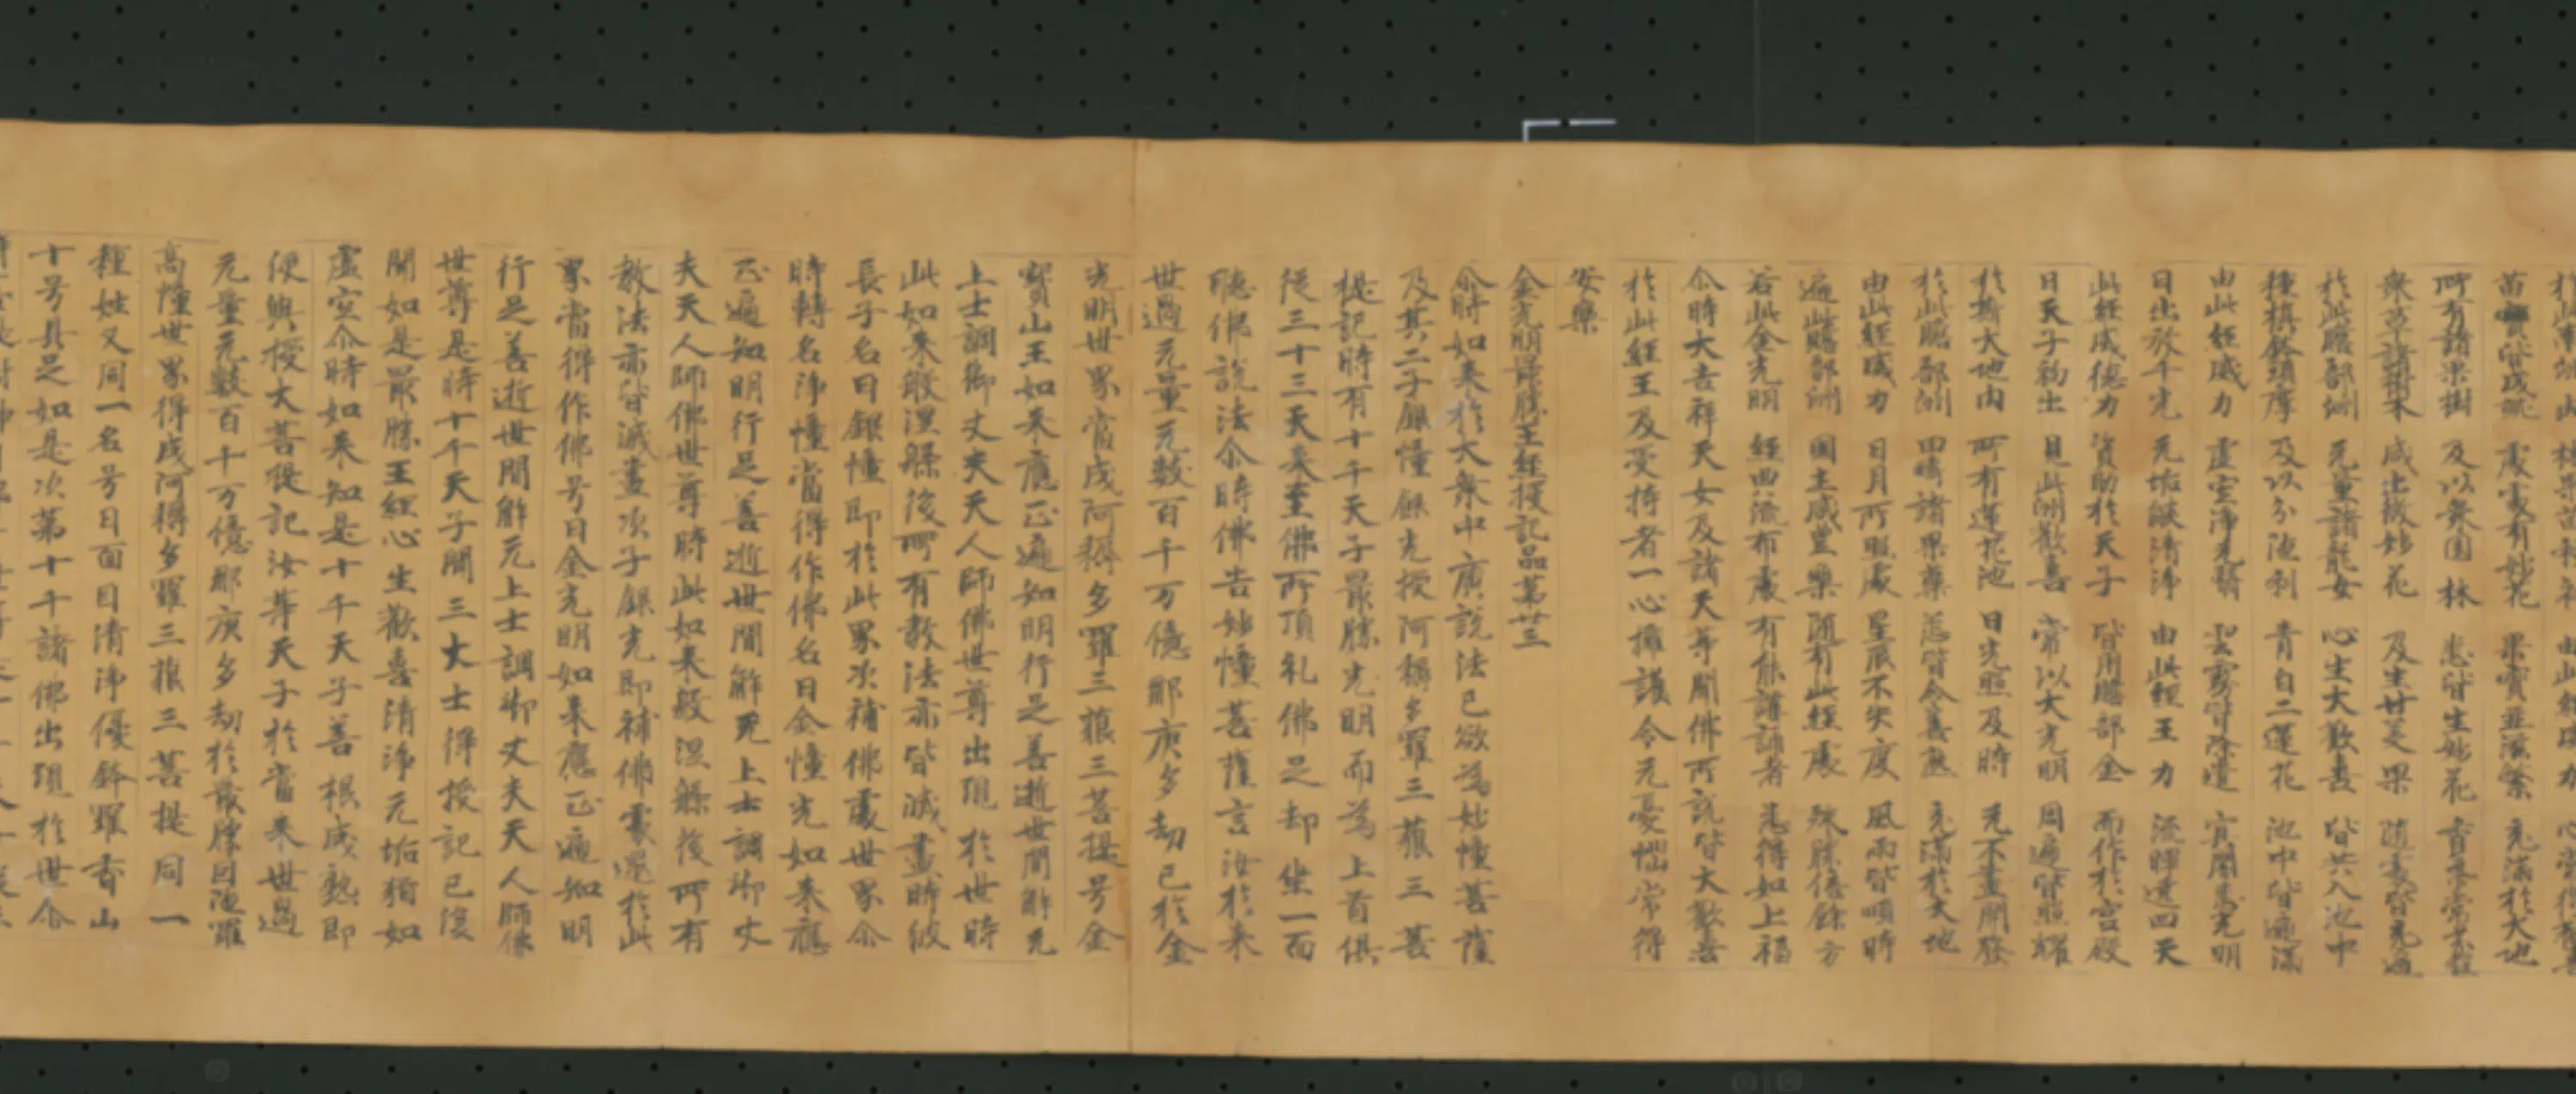 苗實皆成就 處處有妙花 果實並滋繁 充滿於大地
所有諸果樹 及以衆園林 悉皆生妙花 香氣常芬馥
衆草諸樹木 咸出微妙花 及生甘美果 隨處皆充遍
於此贍部洲 无量諸龍女 心生大歡喜 皆共入池中
種植鉢頭摩 及以分陁利 青白二蓮花 池中皆遍滿
由此經威力 虛空淨无翳 雲霧皆除遣 冥闇悉光明
日出放千光 无垢焰清淨 由此經王力 流暉遶四天
此經威德力 資助於天子 皆用贍部金 而作於宮殿
日天子初出 見此洲歡喜 常以大光明 周遍皆照耀
於斯大地內 所有蓮花池 日光照及時 无不盡開發
於此贍部洲 田疇諸果藥 悉皆令善熟 充滿於大地
由此經威力 日月所照處 星辰不失度 風雨皆順時
遍此贍部洲 国土咸豐樂 隨有此經處 殊勝倍餘方
若此金光明 經典流布處 有能講誦者 悉得如上福
尒時大吉祥天女及諸天等聞佛所說皆大歡喜
於此經王及受持者一心擁護令无憂惱常得
安樂
金光明㝡勝王經授記品第廿三
尒時如来於大衆中廣說法已欲為妙幢菩薩
及其二子銀幢銀光授阿耨多羅三藐三菩
提記時有十千天子㝡勝光明而為上首俱
從三十三天来至佛所頂礼佛足却坐一面
聽佛說法尒時佛告妙幢菩薩言汝於来
世過无量无數百千万億那庾多劫已於金
光明世界當成阿耨多羅三藐三菩提号金
寶山王如来應正遍知明行足善逝世間解无
上士調御丈夫天人師佛世尊出現於世時
此如来般涅槃後所有教法亦皆滅盡時彼
長子名曰銀幢即於此界次補佛處世界尒
時轉名淨幢當得作佛名曰金幢光如来應
正遍知明行足善逝世間解无上士調御丈
夫天人師佛世尊時此如来般涅槃後所有
教法亦皆滅盡次子銀光即補佛處還於此
界當得作佛号曰金光明如来應正遍知明
行足善逝世間解无上士調御丈夫天人師佛
世尊是時十千天子聞三大士得授記已復
聞如是㝡勝王經心生歡喜清淨无垢猶如
虛空尒時如来知是十千天子善根成熟即
便與授大菩提記汝等天子於當来世過
无量无數百千万億那庾多劫於㝡勝因陁羅
高幢世界得成阿耨多羅三藐三菩提同一
種姓又同一名号曰面目清淨優鉢羅香山
十号具足如是次第十千諸佛出現於世尒